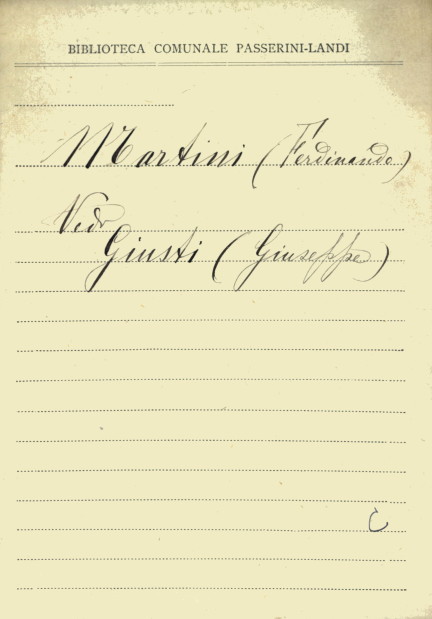 BIBLIOTECA COMUNALE PASSERINI-LANDI
Martini (Ferdinando)
Vedi
Giusti (Giuseppe)
C